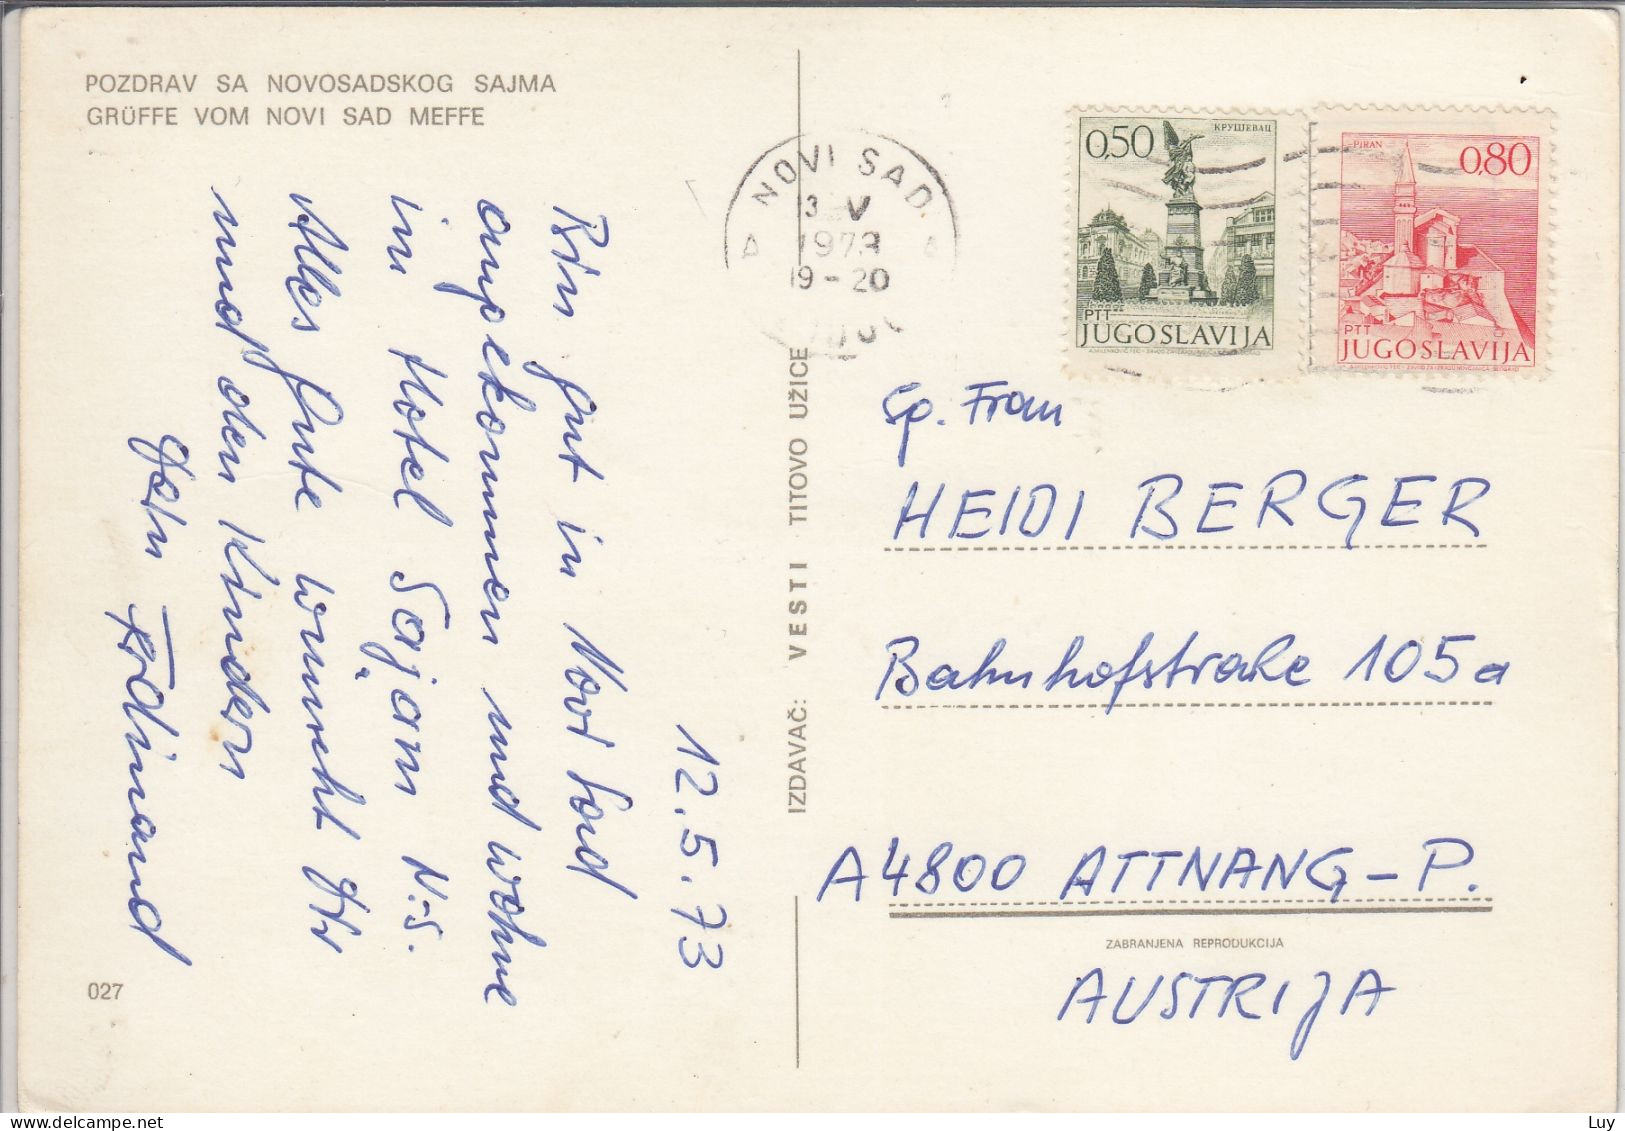 POZDRAV SA NOVOSADSKOG SAJMA
GRÜFFE VOM NOVI SAD MEFFE
12.5.73
Bin gut in Novi Sad
angekommen und wohne
im Hotel Sajam N.-S.
Alles Gute wünscht Dir
und den Kindern
Ferdinand
027
IZDAVAČ: VESTI TITOVO UŽICE
NOVI SAD
3 V
1973
19-20
0,50
КРУШЕВАЦ
PTT
JUGOSLAVIJA
PIRAN
0,80
PTT
JUGOSLAVIJA
Sp. Frau
HEIDI BERGER
Bahnhofstraße 105a
A 4800 ATTNANG-P.
ZABRANJENA REPRODUKCIJA
AUSTRIJA
Luy